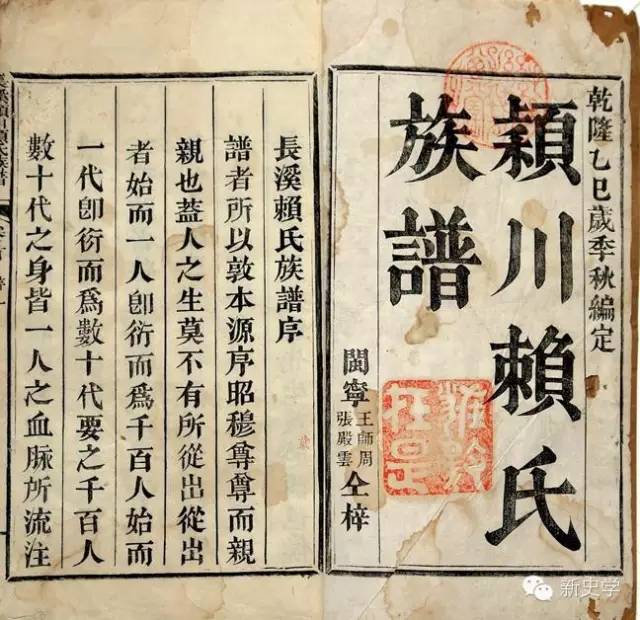 乾隆乙巳歲季秋編定
穎川賴氏
族譜
閩寧王師周張殿雲仝梓
長溪賴氏族譜序
譜者所以敦本源序昭穆尊尊而親
親也蓋人之生莫不有所從出從出
者始而一人卽衍而爲千百人始而
一代卽衍而爲數十代要之千百人
數十代之身皆一人之血脉所流注
新史学